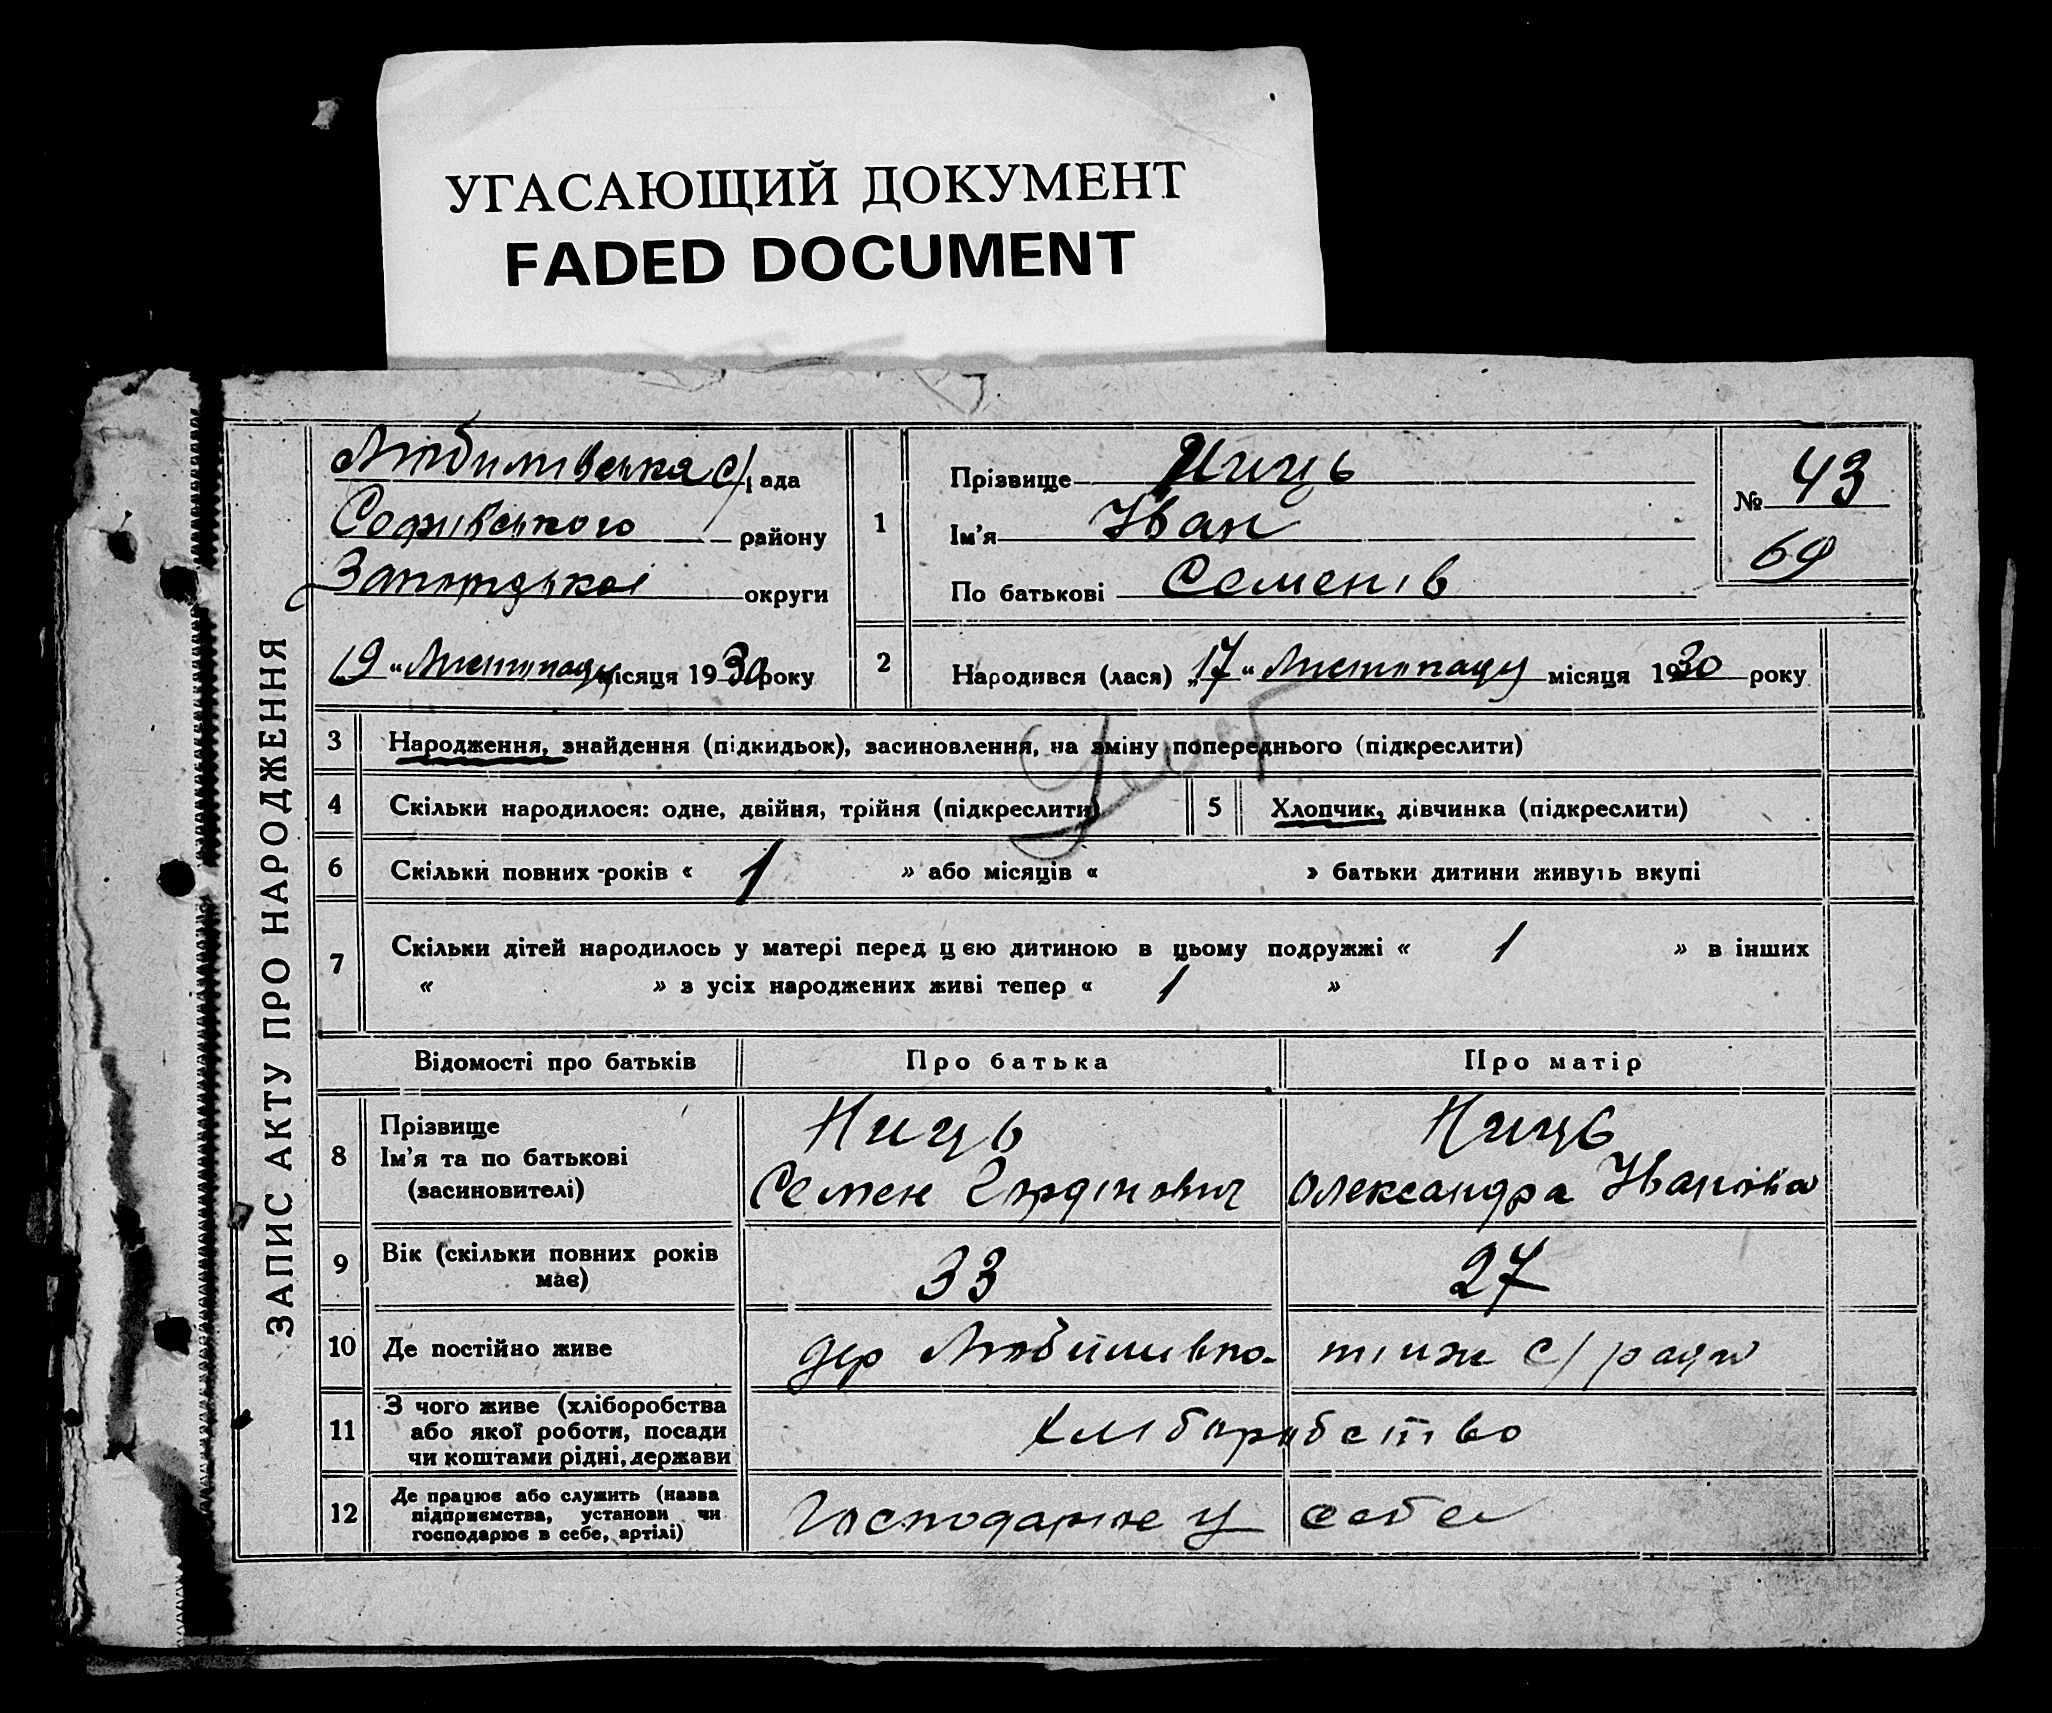 УГАСАЮЩИЙ ДОКУМЕНТ
FADED DOCUMENT
ЗАПИС АКТУ ПРО НАРОДЖЕННЯ
Любимівська с/рада
Софіївського району
Запорізької округи
„19“ Листопаду місяця 1930 року
1
Прізвище Ниць
Ім'я Іван
По батькові Семенів
№ 43
69
2
Народився (лася) „17“ Листопаду місяця 1930 року
3 Народження, знайдення (підкидьок), засиновлення, на зміну попереднього (підкреслити)
4 Скільки народилося: одне, двійня, трійня (підкреслити)
5 Хлопчик, дівчинка (підкреслити)
6 Скільки повних років « 1 » або місяців « » батьки дитини живуть вкупі
7 Скільки дітей народилось у матері перед цією дитиною в цьому подружжі « 1 » в інших
« » з усіх народжених живі тепер « 1 »
Відомості про батьків Про батька Про матір
8
Прізвище
Ім'я та по батькові
(засиновителі)
Ниць
Семен Гордійович
Ниць
Олександра Іванівна
9
Вік (скільки повних років
має)
33 27
10 Де постійно живе
дер Любимівка тіиж с/ради
11
З чого живе (хліборобства
або якої роботи, посади
чи коштами рідні, держави
хліборобство
12
Де працює або служить (назва
підприємства, установи чи
господарює в себе, артілі)
Господарює у себе